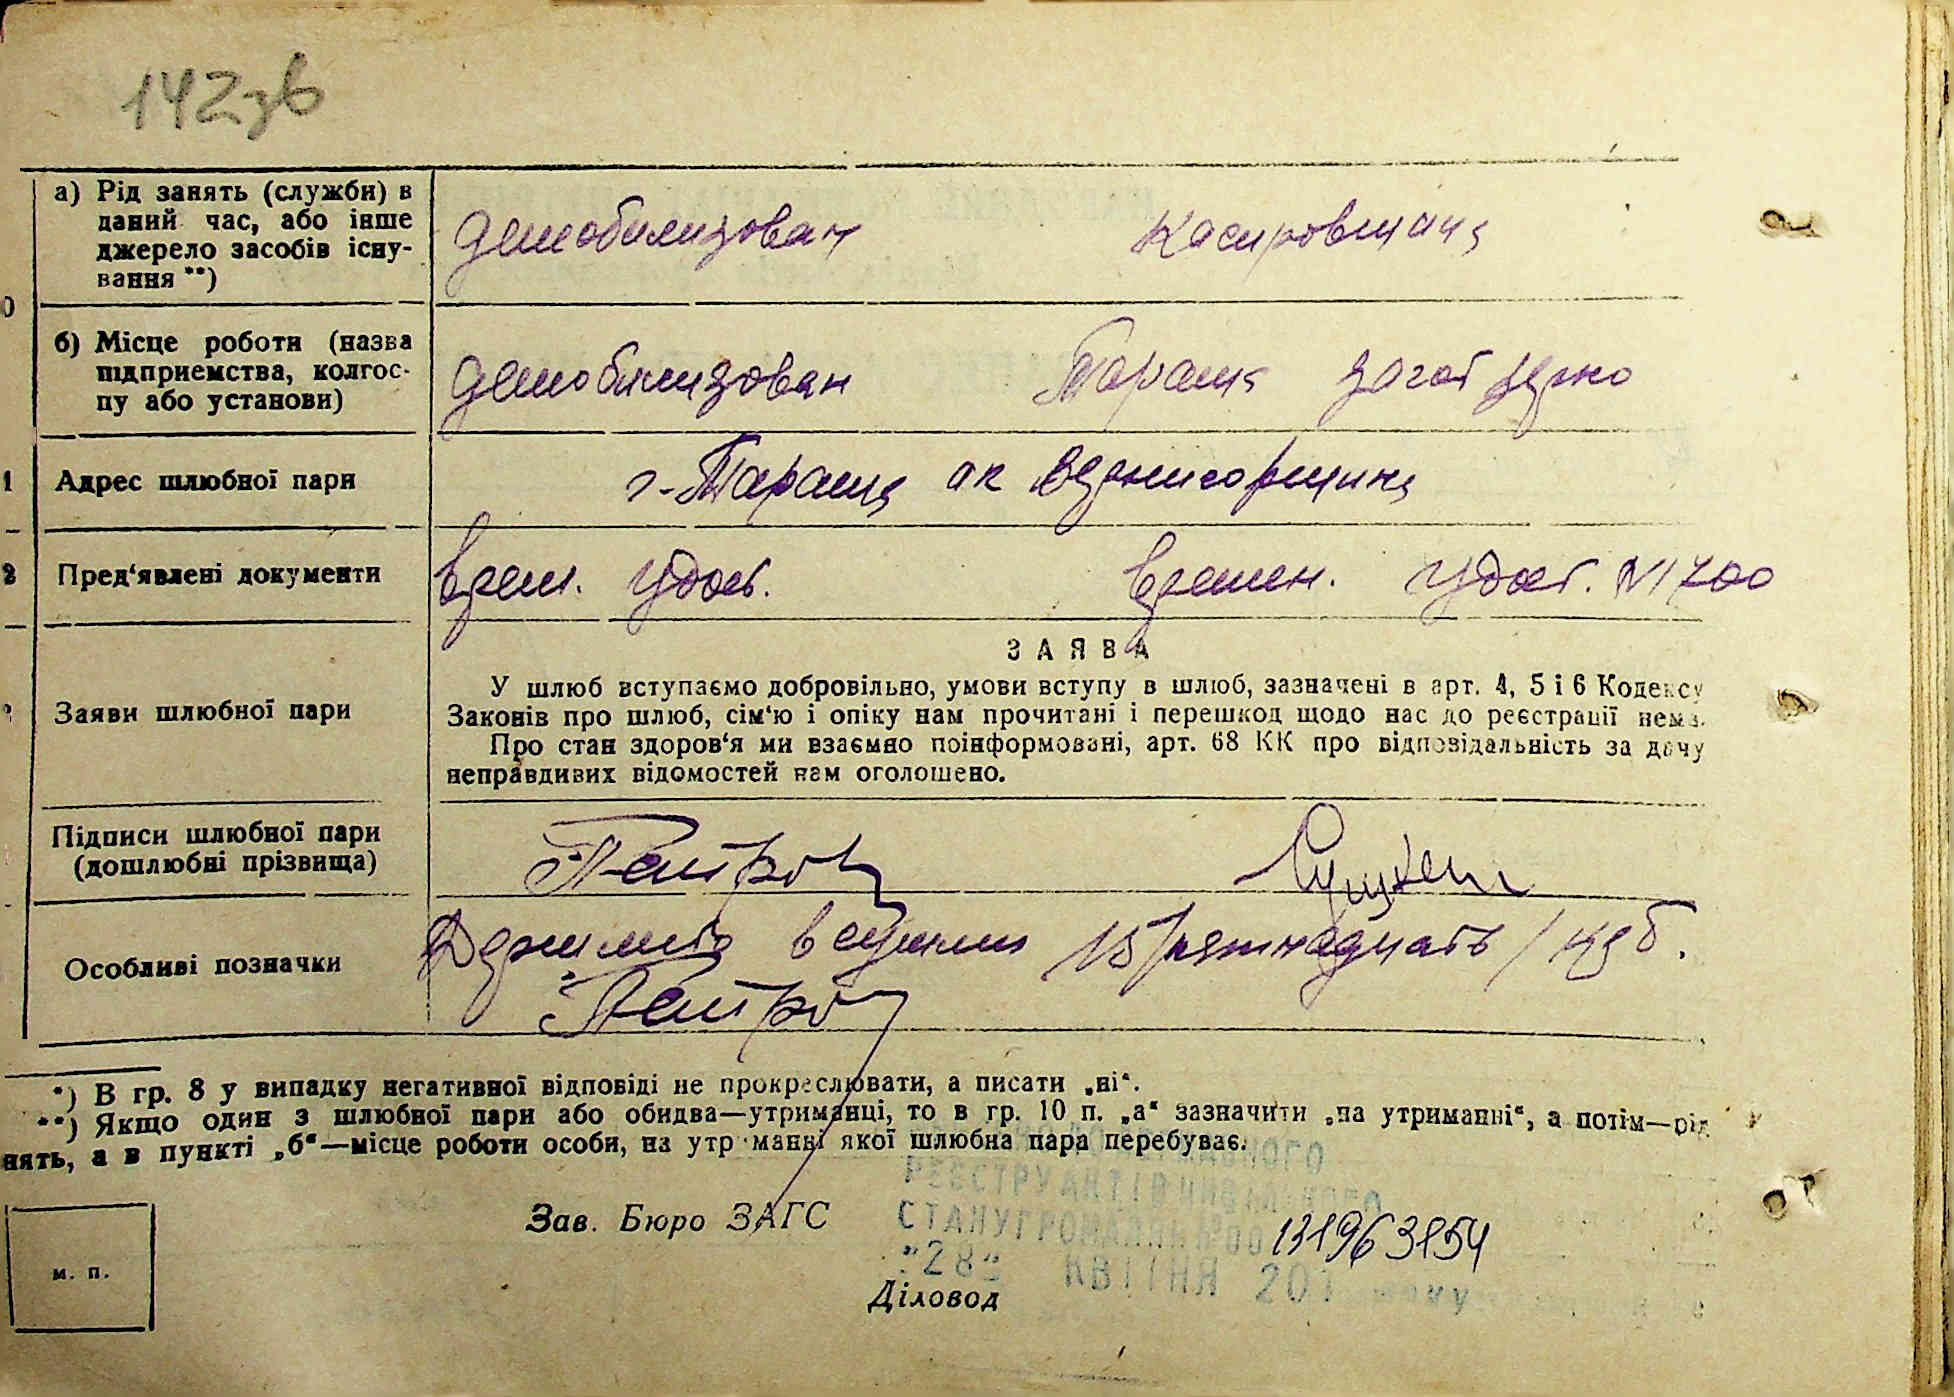 142зв
а) Рід занять (служби) в
даний час, або інше
джерело засобів існу-
вання **)
демобилизован
б) Місце роботи (назва
підприємства, колгос-
пу або установи)
демобилизован Тараща загот зерно
Адрес шлюбної пари
г. Тараща
Пред‘явлені документи
врем. удов. времен. удост. N 1700
Заяви шлюбної пари
ЗАЯВА
У шлюб вступаємо добровільно, умови вступу в шлюб, зазначені в арт. 4, 5 і 6 Кодексу
Законів про шлюб, сім‘ю і опіку нам прочитані і перешкод щодо нас до реєстрації нема.
Про стан здоров‘я ми взаємно поінформовані, арт. 68 КК про відповідальність за дачу
неправдивих відомостей нам оголошено.
Підписи шлюбної пари
(дошлюбні прізвища)
Петров
Особливі позначки
в сумме 15 /пятнадцать/ руб.
Петров
*) В гр. 8 у випадку негативної відповіді не прокреслювати, а писати „ні“.
**) Якщо один з шлюбної пари або обидва—утриманці, то в гр. 10 п. „а“ зазначити „на утриманні“, а потім—рід
нять, а в пункті „б“—місце роботи особи, на утриманні якої шлюбна пара перебуває.
РЕЄСТРУ АКТІВ ЦИВІЛЬНОГО
СТАНУ ГРОМАДЯН
Зав. Бюро ЗАГС
"28" КВІТНЯ 201 року
Діловод
м. п.